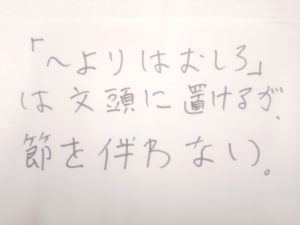 「〜よりはむしろ」
は文頭に置けるが、
節を伴わない。